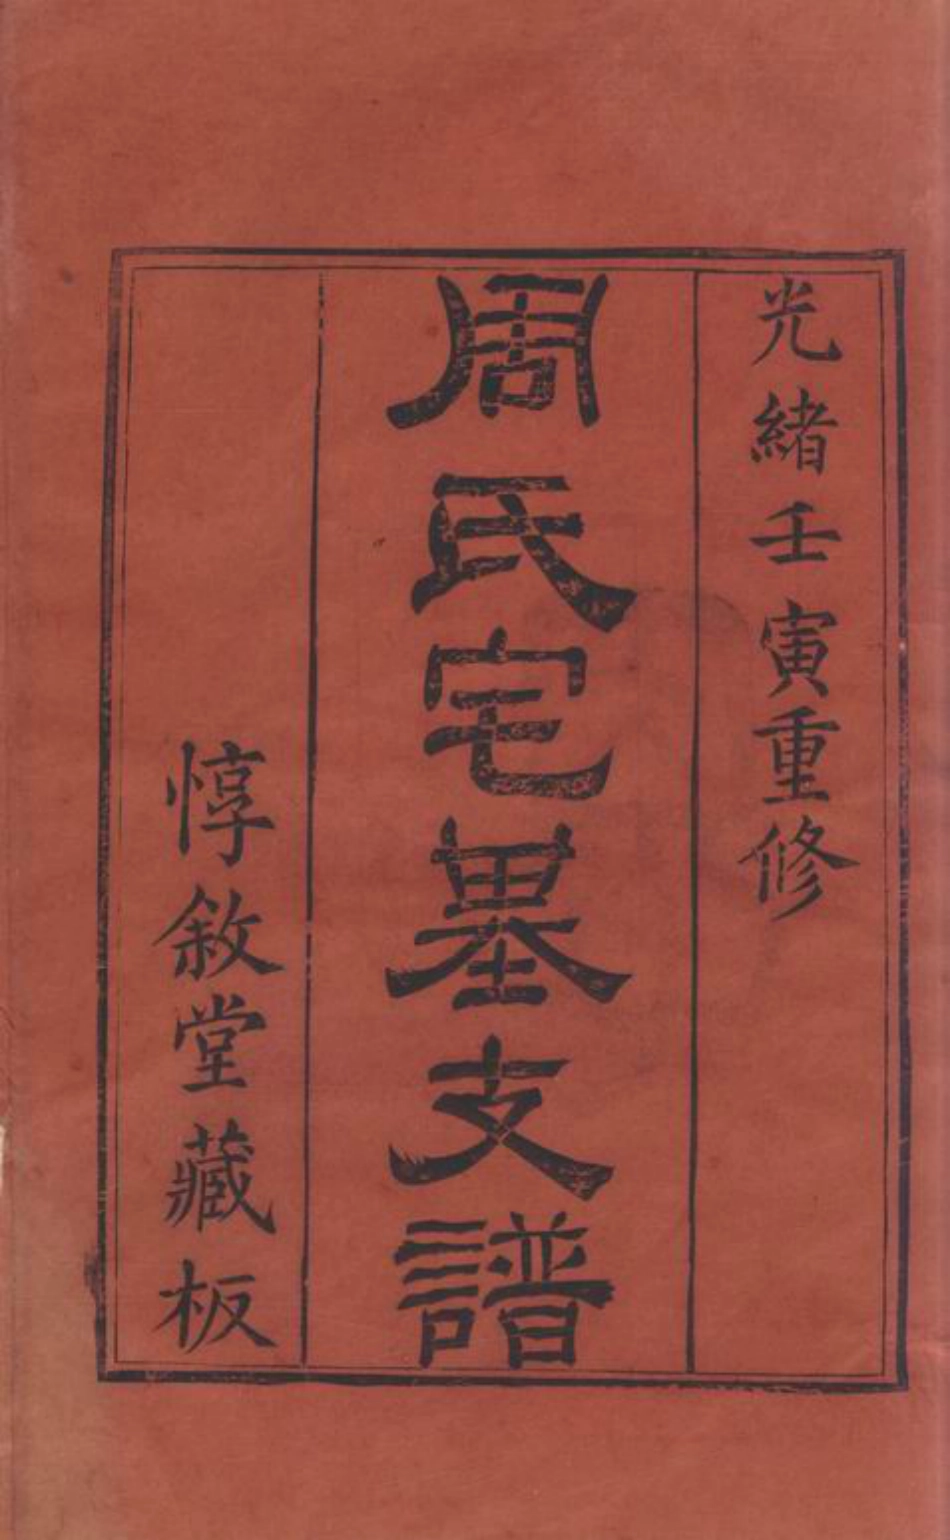 光緒壬寅重修
周氏宅墓支譜
惇敘堂藏板